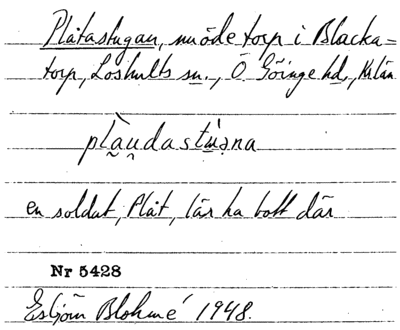 Plåtastugan, nu öde torp i Blacka-
torp, Loshults sn., Ö Göinge hd., Kr. län
en soldat, Plåt, lär ha bott där
Nr 5428
Esbjörn Blohmé 1948.